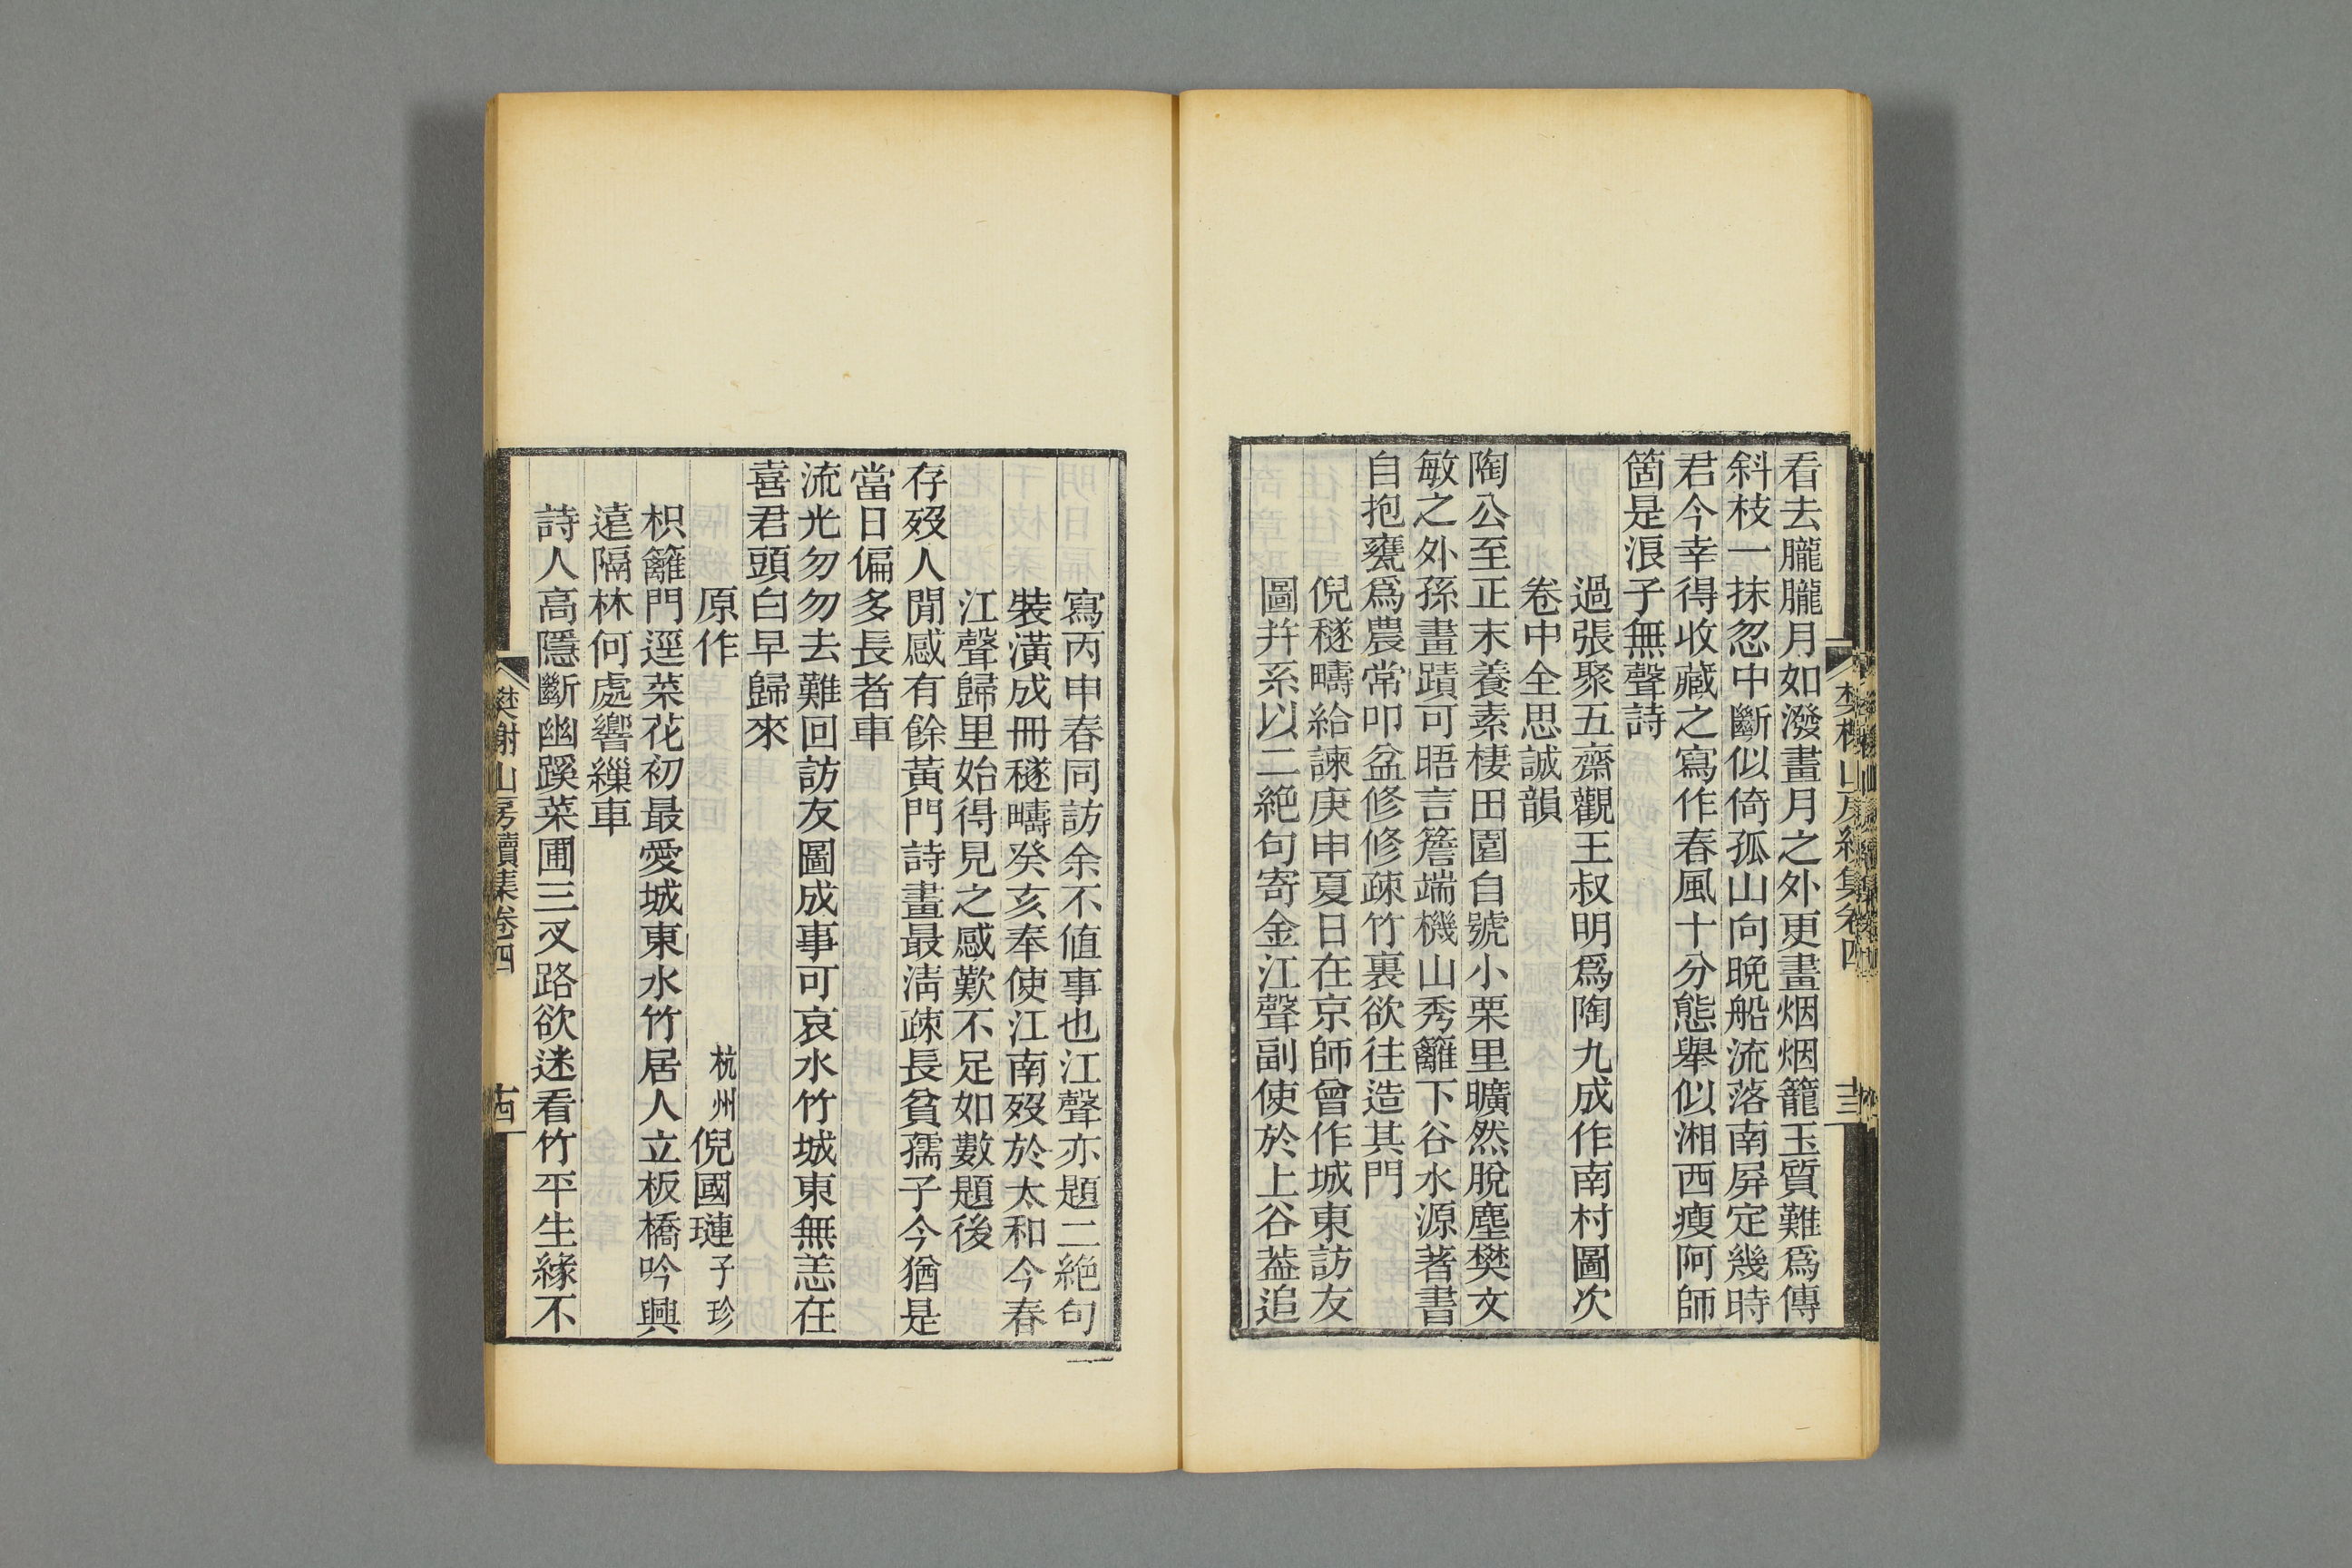 看去朧朧月如潑畫月之外更畫烟烟籠玉質難爲傳
斜枝一抹忽中斷似倚孤山向晚船流落南屏定幾時
君今幸得收藏之寫作春風十分態舉似湘西瘦阿師
箇是浪子無聲詩
過張聚五齋觀王叔明爲陶九成作南村圖次
卷中全思誠韻
陶公至正末養素棲田園自號小栗里曠然脫塵樊文
敏之外孫畫蹟可晤言簷端機山秀籬下谷水源著書
自抱甕爲農常叩盆修修疎竹裏欲往造其門
倪穟疇給諫庚申夏日在京師曾作城東訪友
圖幷系以二絶句寄金江聲副使於上谷葢追
寫丙申春同訪余不値事也江聲亦題二絶句
裝潢成冊穟疇癸亥奉使江南歿於太和今春
江聲歸里始得見之感歎不足如數題後
存歿人閒感有餘黃門詩畫最淸疎長貧孺子今猶是
當日偏多長者車
流光勿勿去難回訪友圖成事可哀水竹城東無恙在
喜君頭白早歸來
原作 杭州倪國璉子珍
枳籬門逕菜花初最愛城東水竹居人立板橋吟興
遠隔林何處響繅車
詩人高隱斷幽蹊菜圃三叉路欲迷看竹平生緣不
樊榭山房續集卷四 十四